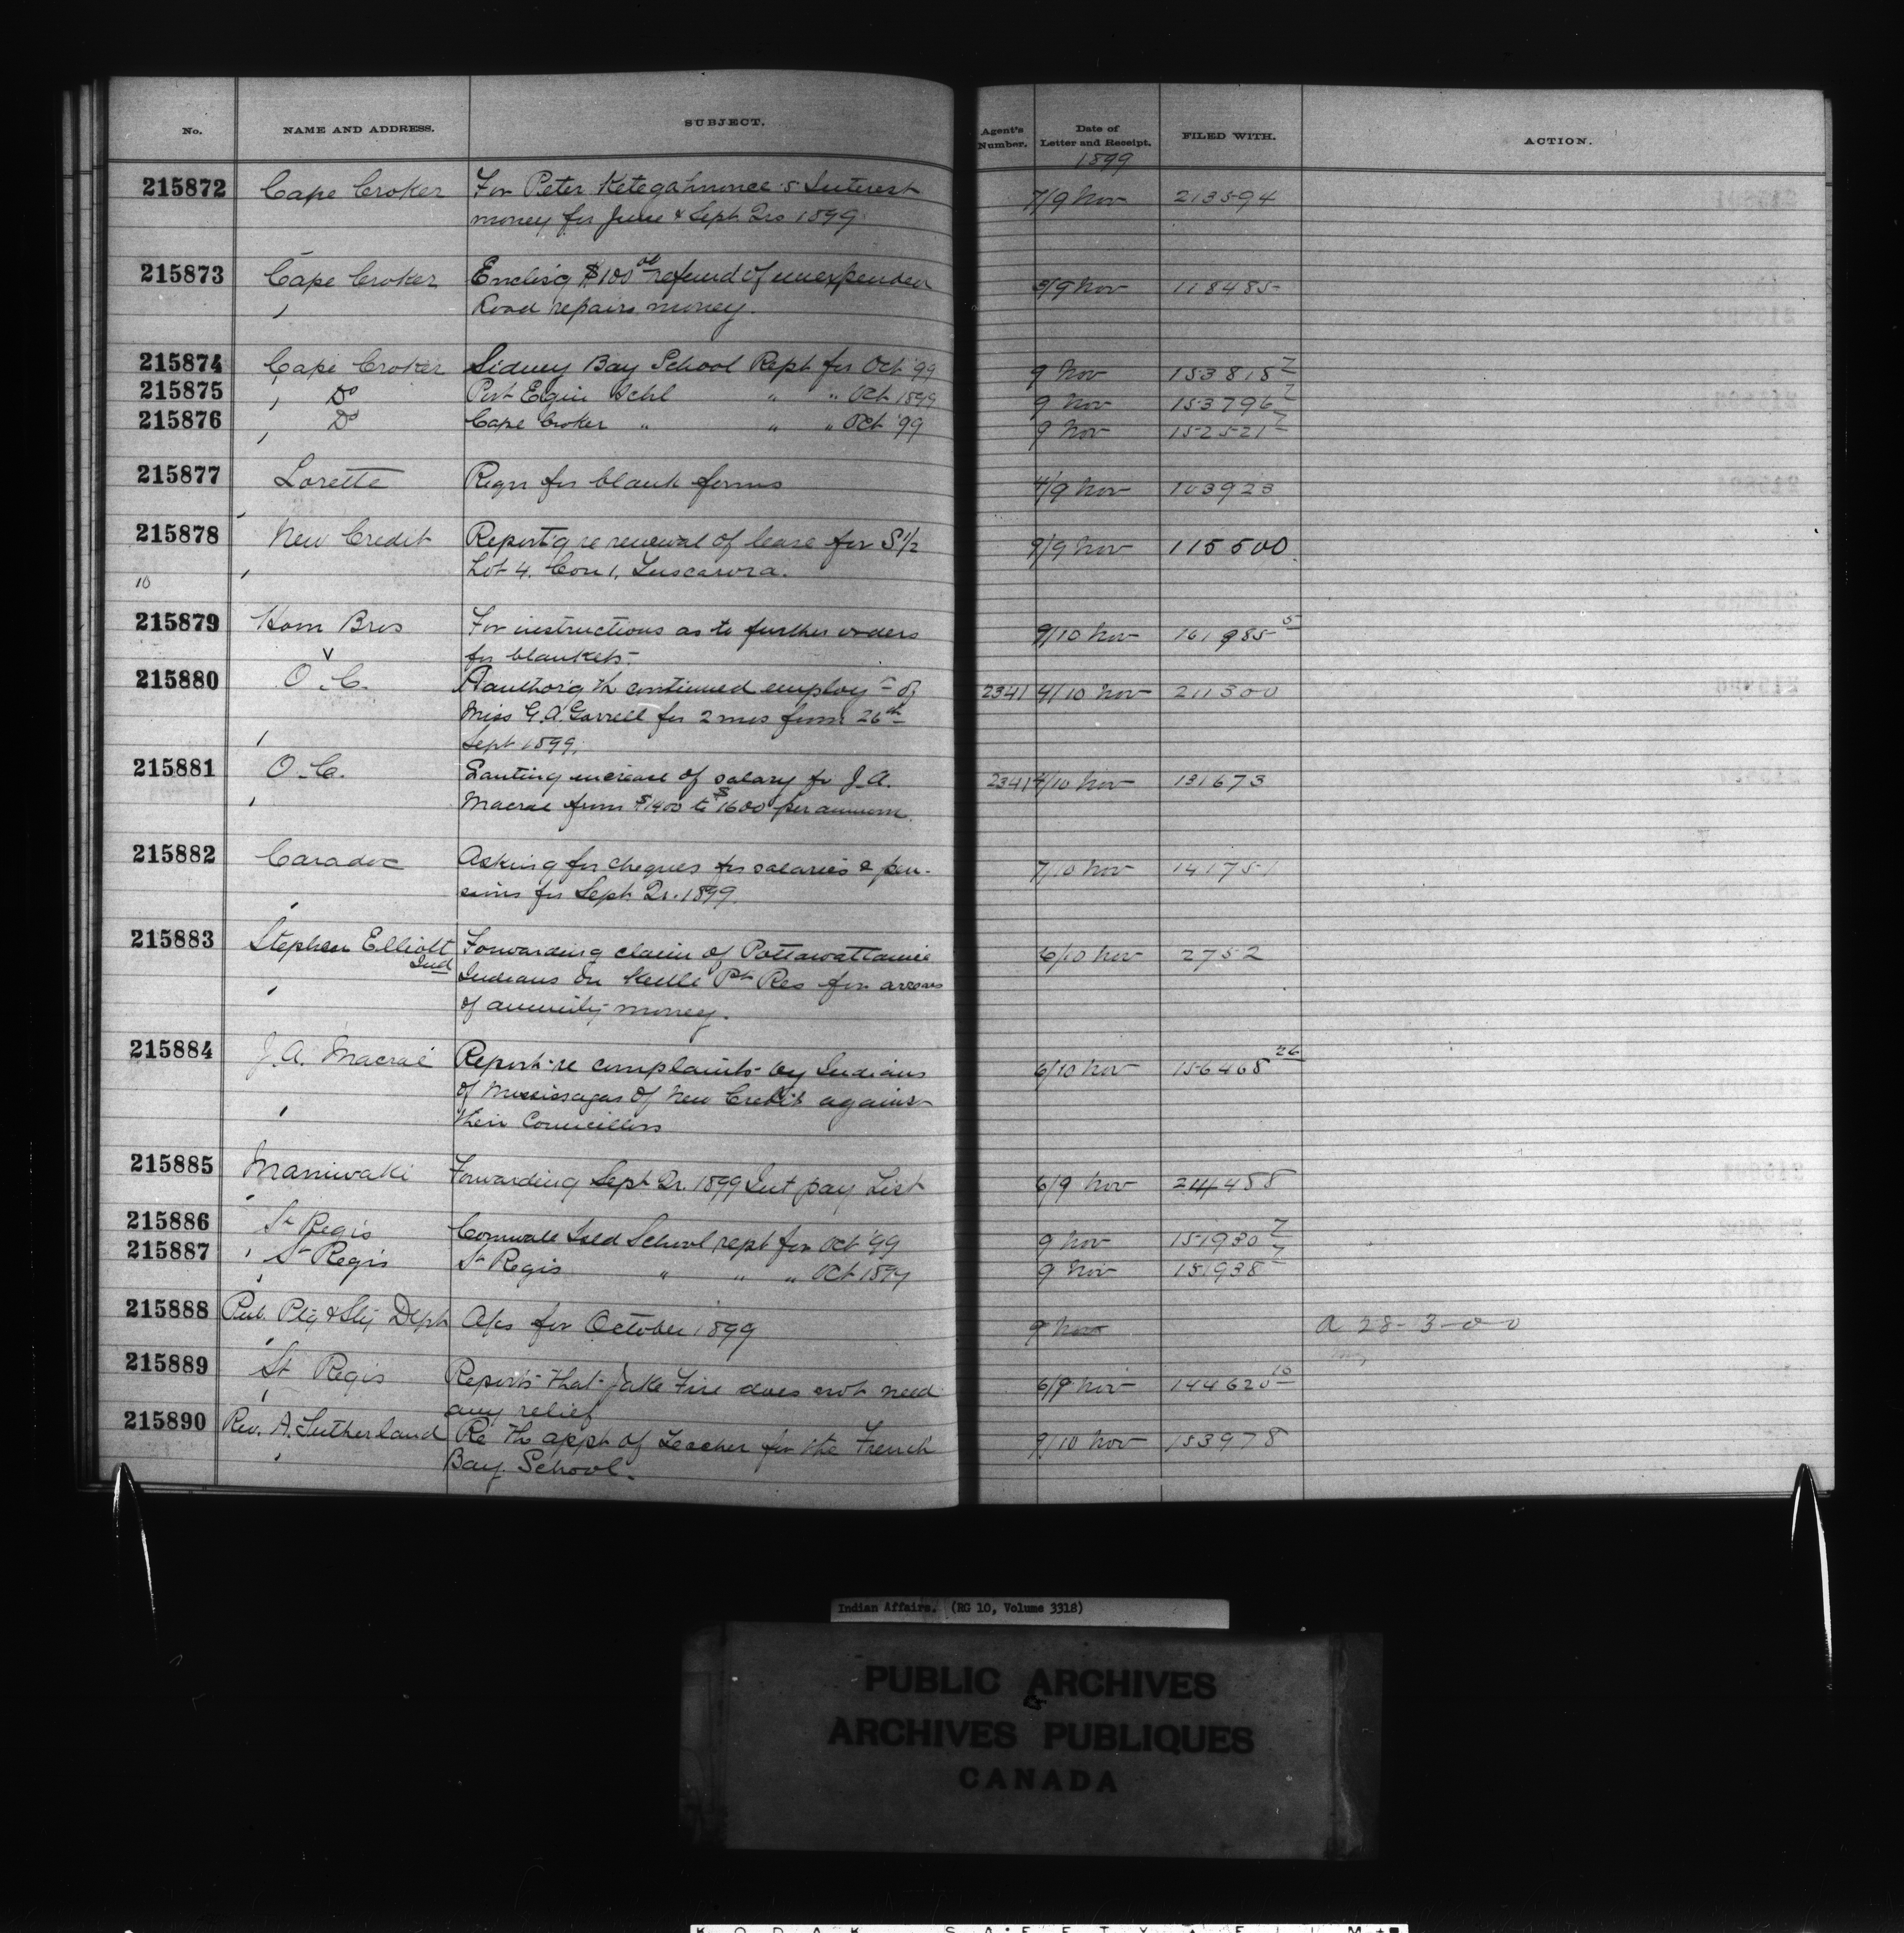 No. NAME AND ADDRESS. SUBJECT. Agent's Number. Date of Letter and Receipt. FILED WITH. ACTION.
1899
215872 Cape Croker For Peter Ketegahnonce's Interest 7/9 Nov 213594
money for June & Sept Qrs 1899
215873 Cape Croker Enclos'g $100 00 refund of unexpended 5/9 Nov 118485
Road repairs money.
215874 Cape Croker Sidney Bay School Rept for Oct '99 9 Nov 153818 7
215875 Do Port Elgin Schl " " Oct 1899 9 Nov 153796 7
215876 Do Cape Croker " " " Oct '99 9 Nov 152521 7
215877 Lorette Reqn for blank forms 4/9 Nov 103923
215878 New Credit Report'g re renewal of lease for S 1/2 9/9 Nov 115500
10 Lot 4, Con 1, Tuscarora.
215879 Horn Bros For instructions as to further orders 9/10 Nov 161985 5
for blankets.
215880 O.C. Aauthor'g th continued employ of 2341 4/10 Nov 211300
Miss G.A. Gorrell for 2 mos from 26th
Sept 1899.
215881 O.C. Santing increase of salary for J.A. 2341 4/10 Nov 131673
Macrae from $1400 to $1600 per annum.
215882 Caradoc Asking for cheques for salaries & pen- 7/10 Nov 141751
sions for Sept Qr. 1899.
215883 Stephen Elliott Forwarding claim of Pottawattamie 6/10 Nov 2752
Ind Indians on Kettle Pt Res for arrears
of annuity money.
215884 J.A. Macrae Report re complaints by Indians 6/10 Nov 156468 26
of Mississagas of New Credit against
their Councillors
215885 Maniwaki Forwarding Sept Qr. 1899 Int pay List 6/9 Nov 214458
215886 St Regis Cornwall Isld School rept for Oct '99 9 Nov 151930 7
215887 St Regis St Regis " " " Oct 1899 9 Nov 151938 7
215888 Pub. Ptg & Sty Dept A/cs for October 1899 9 Nov A 28-3-0-0
215889 St Regis Reports that Jake Fire does not need 6/9 Nov 144620 10
any relief
215890 Rev. A. Sutherland Re th appt of teacher for the French 9/10 Nov 153978
Bay School.
Indian Affairs. (RG 10, Volume 3318)
PUBLIC ARCHIVES
ARCHIVES PUBLIQUES
CANADA
KODAK SAFETY FILM